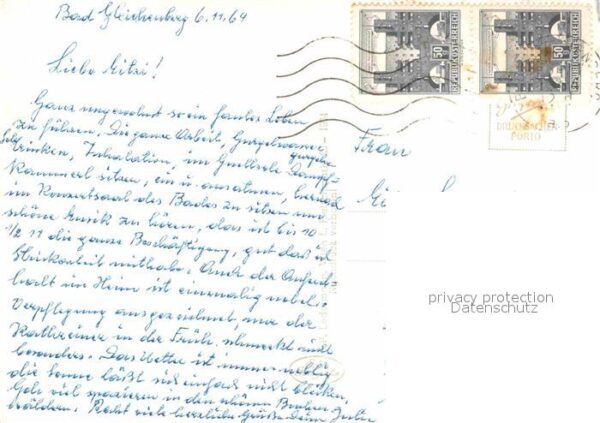 Bad Gleichenberg 6.11.64
Liebe Mitzi!
Ganz ungewohnt so ein faules Leben
zu führen. Die ganze Arbeit, Gurgelwasser gurgeln
trinken, Inhalation, im Quellsole Dampf-
Kammerl sitzen, ein u. ausatmen, hernach
im Konzertsaal des Bades zu sitzen und
schöne Musik zu hören, das ist bis 10
1/2 11 die ganze Beschäftigung, gut daß ich
Strickarbeit mithabe. Auch der Aufent-
halt im Heim ist einmalig nobel.
Verpflegung ausgezeichnet, nur der
Kathreiner in der Früh schmeckt nicht
besonders. Das Wetter ist immer neblig
die Sonne läßt sich einfach nicht blicken.
Geh viel spazieren in den schönen Buchen
wäldern. Recht viele herzliche Grüße Deine
Frau
50 REPUBLIK ÖSTERREICH
50 REPUBLIK ÖSTERREICH
DRUCKSACHEN-
PORTO
privacy protection
Datenschutz